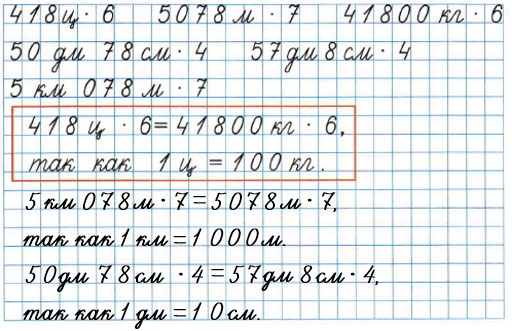 418ц · 6 5078 м · 7 41800 кг · 6
50 дм 78 см · 4 57 дм 8 см · 4
5 км 078 м · 7
418 ц · 6 = 41800 кг · 6,
так как 1 ц = 100 кг.
5 км 078 м · 7 = 5078 м · 7,
так как 1 км = 1000 м.
50 дм 78 см · 4 = 57 дм 8 см · 4,
так как 1 дм = 10 см.